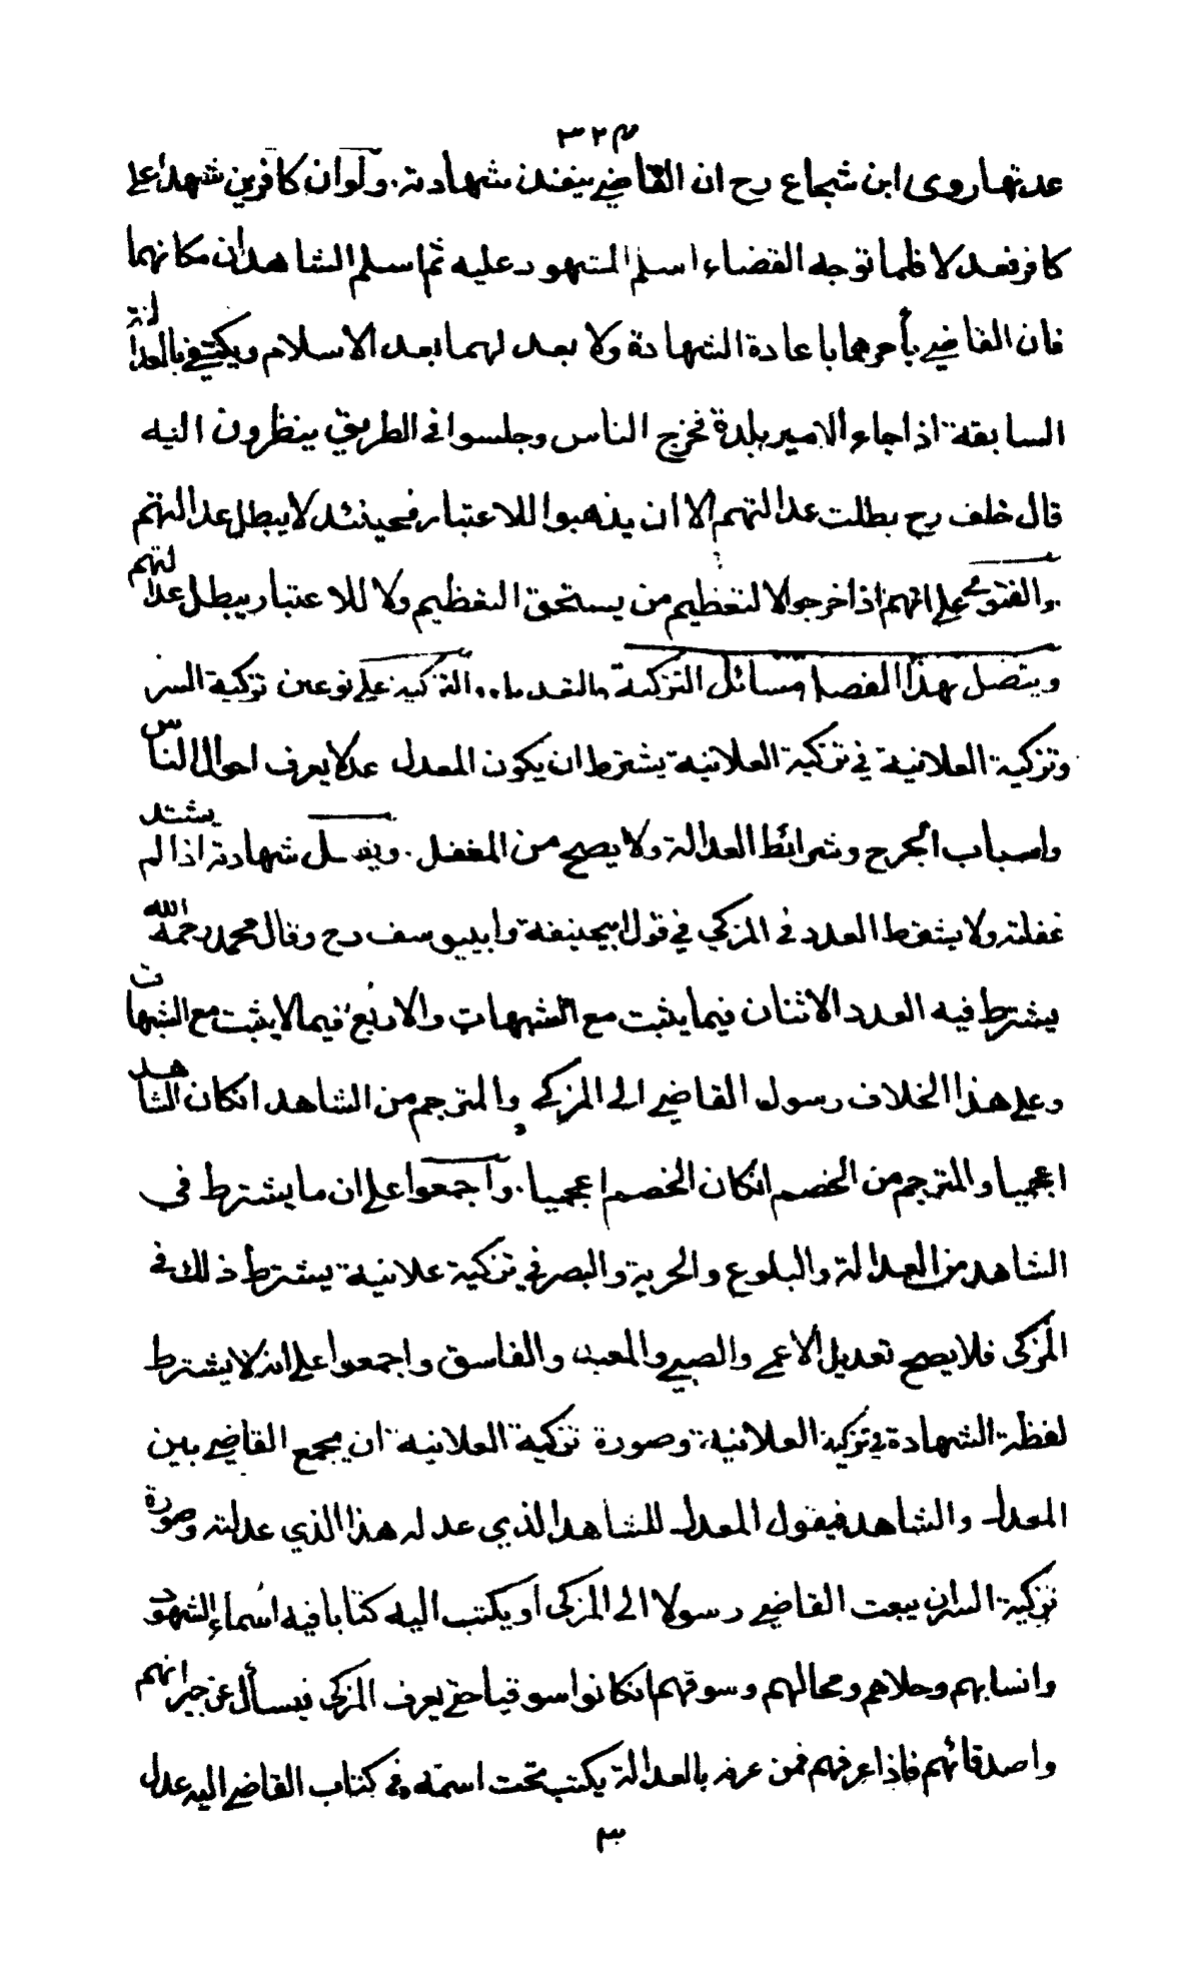 ٣٢٤
عدتها روى ابن شجاع رح ان القاضي ينفذ شهادته. ولو ان كافرين شهدا على
كافر فعدلا فلما توجه القضاء اسلم المشهود عليه ثم اسلم الشاهدان مكانهما
فان القاضي يأمرهما باعادة الشهادة ولا يعدلهما بعد الاسلام ويكتفي بالعدالة
السابقة اذا جاء الامير بلدة فخرج الناس وجلسوا في الطريق ينظرون اليه
قال خلف رح بطلت عدالتهم الا ان يذهبوا للاعتبار فحينئذ لا يبطل عدالتهم
والفتوى على انهم اذا خرجوا لا لتعظيم من يستحق التعظيم ولا للاعتبار يبطل عدالتهم
ويتصل بهذا الفصل مسائل التزكية والتعديل. والتزكية على نوعين تزكية السر
وتزكية العلانية في تزكية العلانية يشترط ان يكون المعدل عدلا يعرف احوال الناس
واسباب الجرح وشرائط العدالة ولا يصح من المغفل. ويقبل شهادته اذا لم يشتد
غفلته ولا يشترط العدد في المزكي في قول ابي حنيفة وابي يوسف رح وقال محمد رحمه الله
يشترط فيه العدد الاثنان فيما يثبت مع الشبهات والاربع فيما لا يثبت مع الشبهات
وعلى هذا الخلاف رسول القاضي الى المزكي والمترجم من الشاهد انكان الشاهد
اعجميا والمترجم من الخصم انكان الخصم اعجميا. واجمعوا على ان ما يشترط في
الشاهد من العدالة والبلوغ والحرية والبصر في تزكية علانية يشترط ذلك في
المزكى فلا يصح تعديل الاعمى والصبي والعبد والفاسق واجمعوا على انه لا يشترط
لفظة الشهادة في تزكية العلانية، وصورة تزكية العلانية ان يجمع القاضي بين
المعدل والشاهد فيقول المعدل للشاهد الذي عدله هذا الذي عدلته وصورة
تزكية السر ان يبعث القاضي رسولا الى المزكى او يكتب اليه كتابا فيه اسماء الشهود
وانسابهم وحلاهم ومحالهم وسوقهم انكانوا سوقيا حتى يعرف المزكى فيسأل عن جيرانهم
واصدقائهم فاذا عرفهم فمن عرفه بالعدالة يكتب تحت اسمه في كتاب القاضي اليه عدل
٣